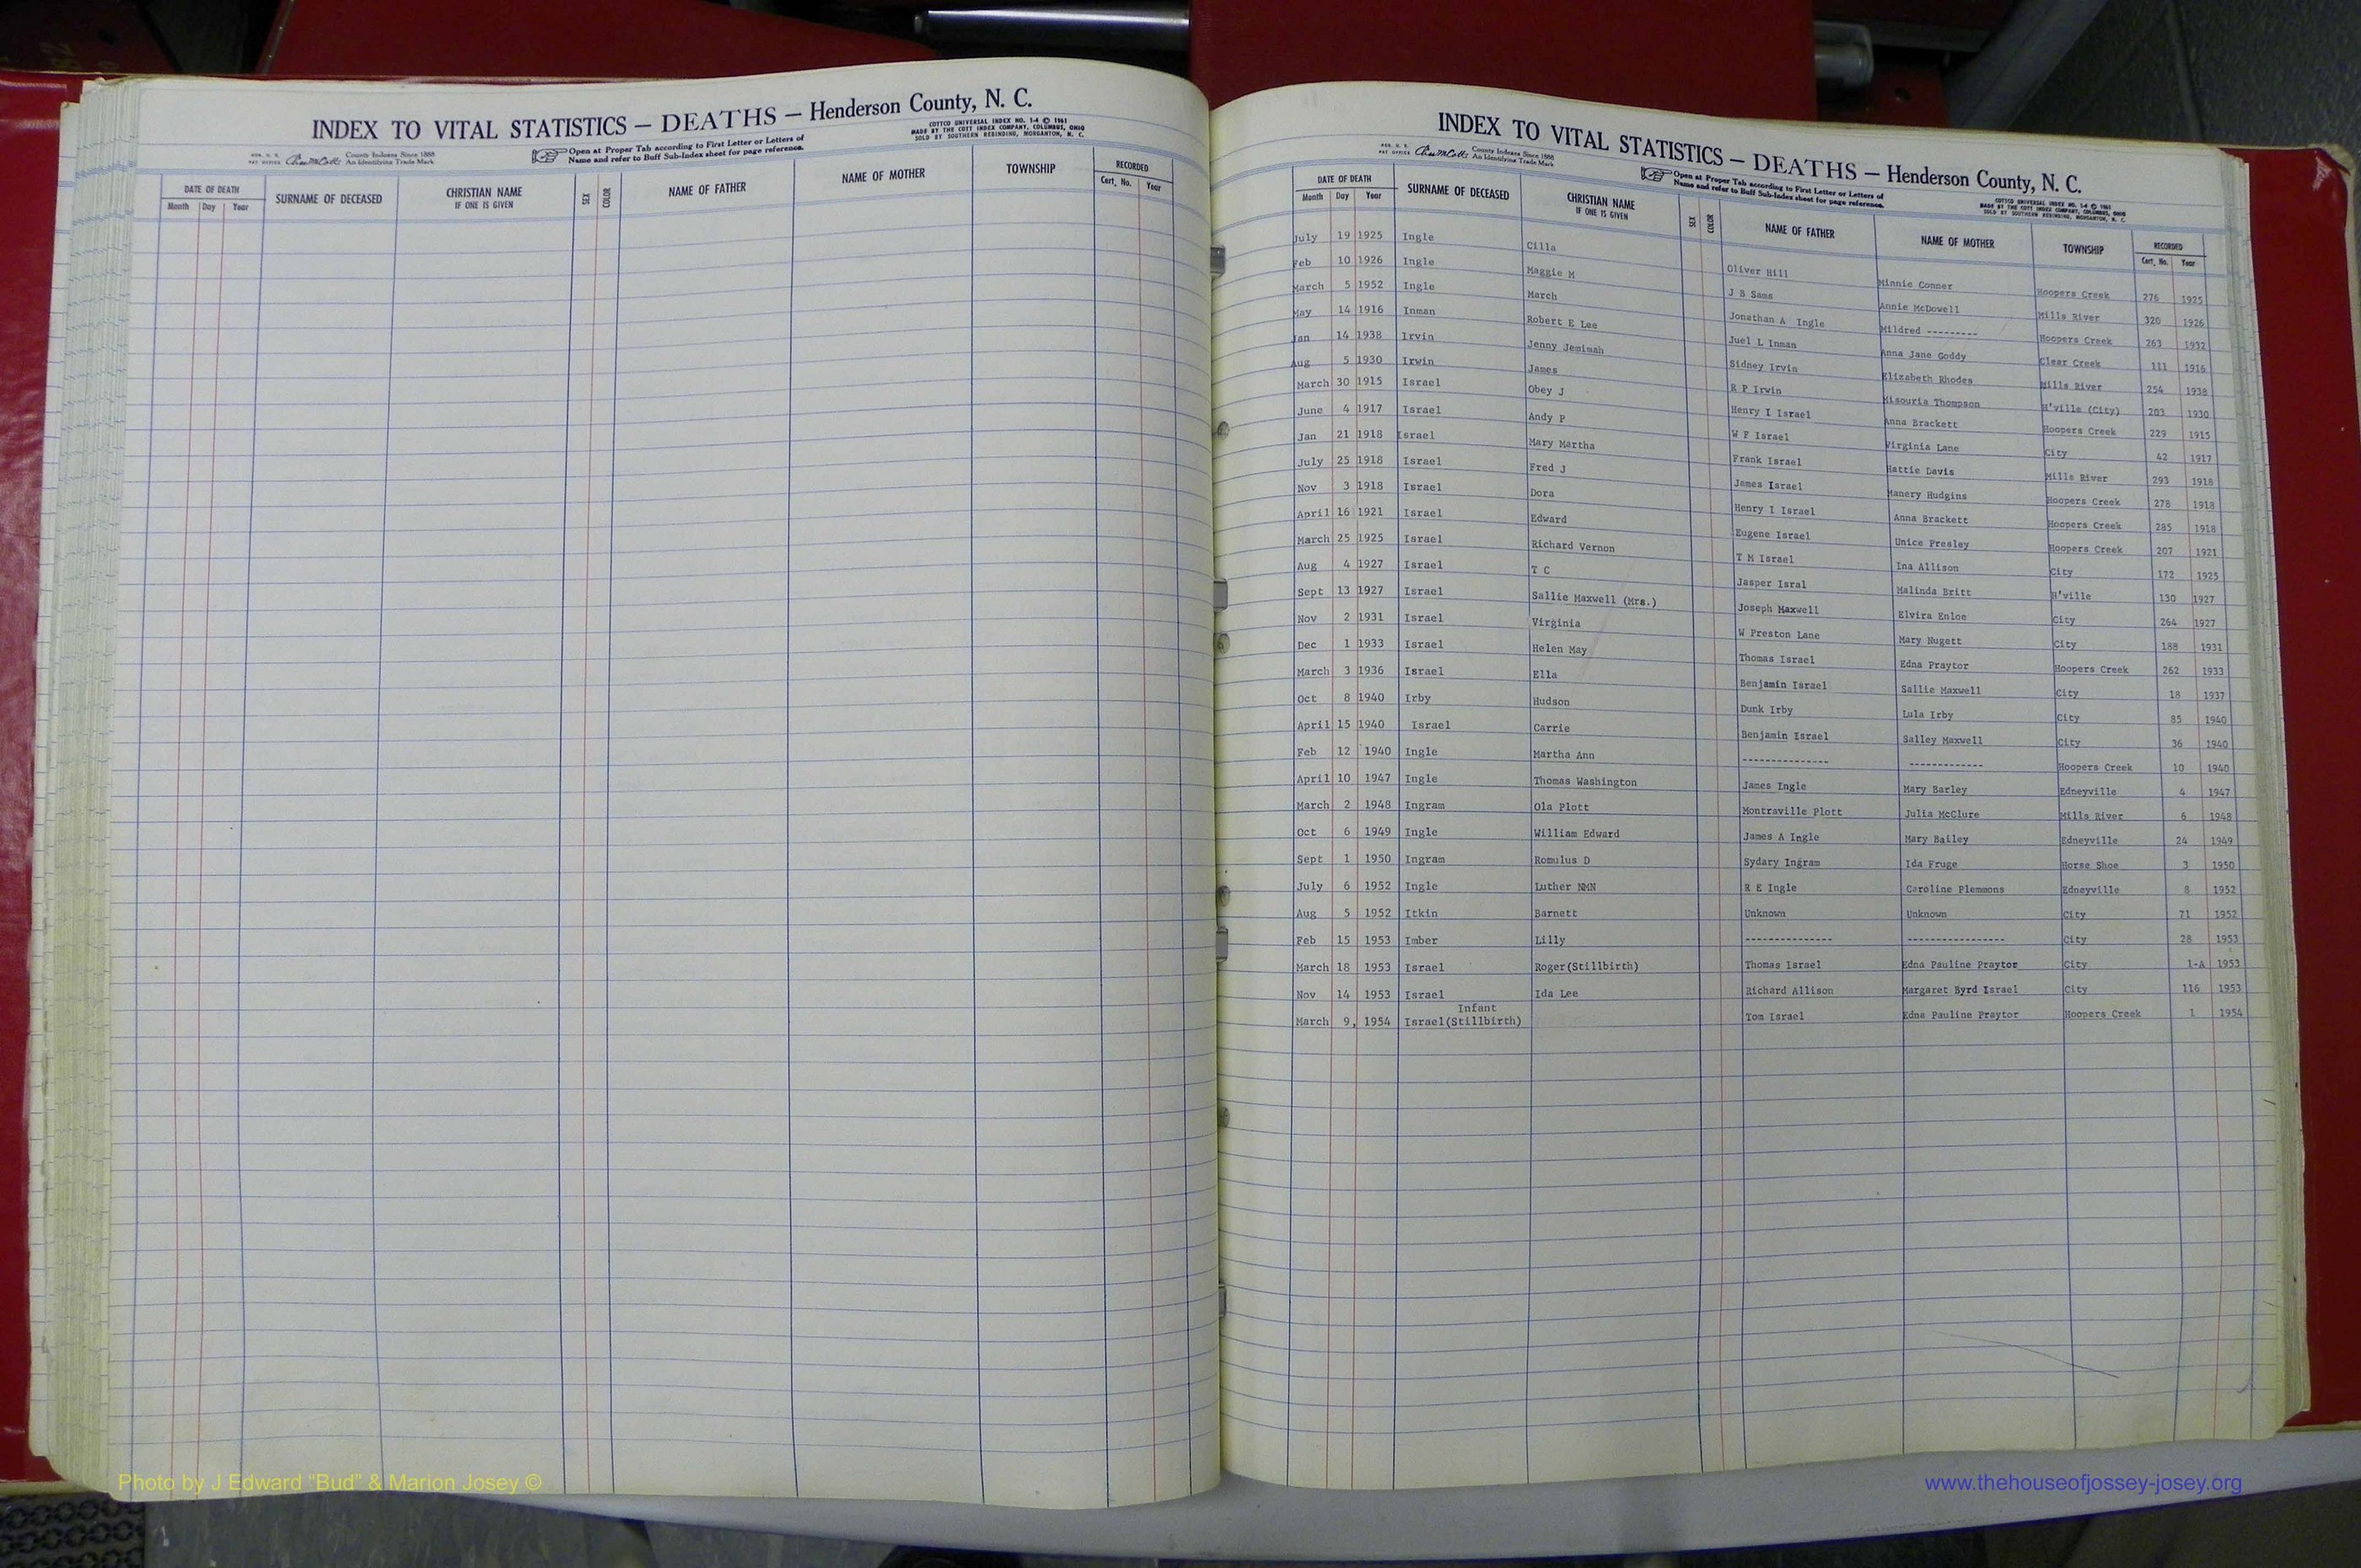 INDEX TO VITAL STATISTICS — DEATHS — Henderson County, N. C.
COTTCO UNIVERSAL INDEX NO. 1-4 © 1961
MADE BY THE COTT INDEX COMPANY, COLUMBUS, OHIO
SOLD BY SOUTHERN REBINDING, MORGANTON, N. C.
County Indexes Since 1888
An Identifying Trade Mark
Open at Proper Tab according to First Letter or Letters of
Name and refer to Buff Sub-Index sheet for page reference.
DATE OF DEATH SURNAME OF DECEASED CHRISTIAN NAME IF ONE IS GIVEN SEX COLOR NAME OF FATHER NAME OF MOTHER TOWNSHIP RECORDED
Month Day Year Cert. No. Year
INDEX TO VITAL STATISTICS — DEATHS — Henderson County, N. C.
County Indexes Since 1888
An Identifying Trade Mark
Open at Proper Tab according to First Letter or Letters of
Name and refer to Buff Sub-Index sheet for page reference.
COTTCO UNIVERSAL INDEX NO. 1-4 © 1961
MADE BY THE COTT INDEX COMPANY, COLUMBUS, OHIO
SOLD BY SOUTHERN REBINDING, MORGANTON, N. C.
DATE OF DEATH SURNAME OF DECEASED CHRISTIAN NAME IF ONE IS GIVEN SEX COLOR NAME OF FATHER NAME OF MOTHER TOWNSHIP RECORDED
Month Day Year Cert. No. Year
July 19 1925 Ingle Cilla Oliver Hill Minnie Conner Hoopers Creek 276 1925
Feb 10 1926 Ingle Maggie M J B Sams Annie McDowell Mills River 320 1926
March 5 1952 Ingle March Jonathan A Ingle Mildred --------- Hoopers Creek 263 1932
May 14 1916 Inman Robert E Lee Juel L Inman Anna Jane Goddy Clear Creek 111 1916
Jan 14 1938 Irvin Jenny Jemimah Sidney Irvin Elizabeth Rhodes Mills River 254 1938
Aug 5 1930 Irwin James R P Irwin Misouria Thompson H'ville (City) 203 1930
March 30 1915 Israel Obey J Henry I Israel Anna Brackett Hoopers Creek 229 1915
June 4 1917 Israel Andy P W F Israel Virginia Lane City 42 1917
Jan 21 1918 Israel Mary Martha Frank Israel Hattie Davis Mills River 293 1918
July 25 1918 Israel Fred J James Israel Manery Hudgins Hoopers Creek 278 1918
Nov 3 1918 Israel Dora Henry I Israel Anna Brackett Hoopers Creek 285 1918
April 16 1921 Israel Edward Eugene Israel Unice Presley Hoopers Creek 207 1921
March 25 1925 Israel Richard Vernon T M Israel Ina Allison City 172 1925
Aug 4 1927 Israel T C Jasper Isral Malinda Britt H'ville 130 1927
Sept 13 1927 Israel Sallie Maxwell (Mrs.) Joseph Maxwell Elvira Enloe City 264 1927
Nov 2 1931 Israel Virginia W Preston Lane Mary Nugett City 188 1931
Dec 1 1933 Israel Helen May Thomas Israel Edna Praytor Hoopers Creek 262 1933
March 3 1936 Israel Ella Benjamin Israel Sallie Maxwell City 18 1937
Oct 8 1940 Irby Hudson Dunk Irby Lula Irby City 85 1940
April 15 1940 Israel Carrie Benjamin Israel Salley Maxwell City 36 1940
Feb 12 1940 Ingle Martha Ann -------------- ------------ Hoopers Creek 10 1940
April 10 1947 Ingle Thomas Washington James Ingle Mary Barley Edneyville 4 1947
March 2 1948 Ingram Ola Plott Montraville Plott Julia McClure Mills River 6 1948
Oct 6 1949 Ingle William Edward James A Ingle Mary Bailey Edneyville 24 1949
Sept 1 1950 Ingram Romulus D Sydary Ingram Ida Fruge Horse Shoe 3 1950
July 6 1952 Ingle Luther NMN R E Ingle Caroline Plemmons Edneyville 8 1952
Aug 5 1952 Itkin Barnett Unknown Unknown City 71 1952
Feb 15 1953 Imber Lilly -------------- ---------------- City 28 1953
March 18 1953 Israel Roger(Stillbirth) Thomas Israel Edna Pauline Praytor City 1-A 1953
Nov 14 1953 Israel Ida Lee Richard Allison Margaret Byrd Israel City 116 1953
Infant
March 9, 1954 Israel(Stillbirth) Tom Israel Edna Pauline Praytor Hoopers Creek 1 1954
Photo by J Edward “Bud” & Marion Josey ©
www.thehouseofjossey-josey.org